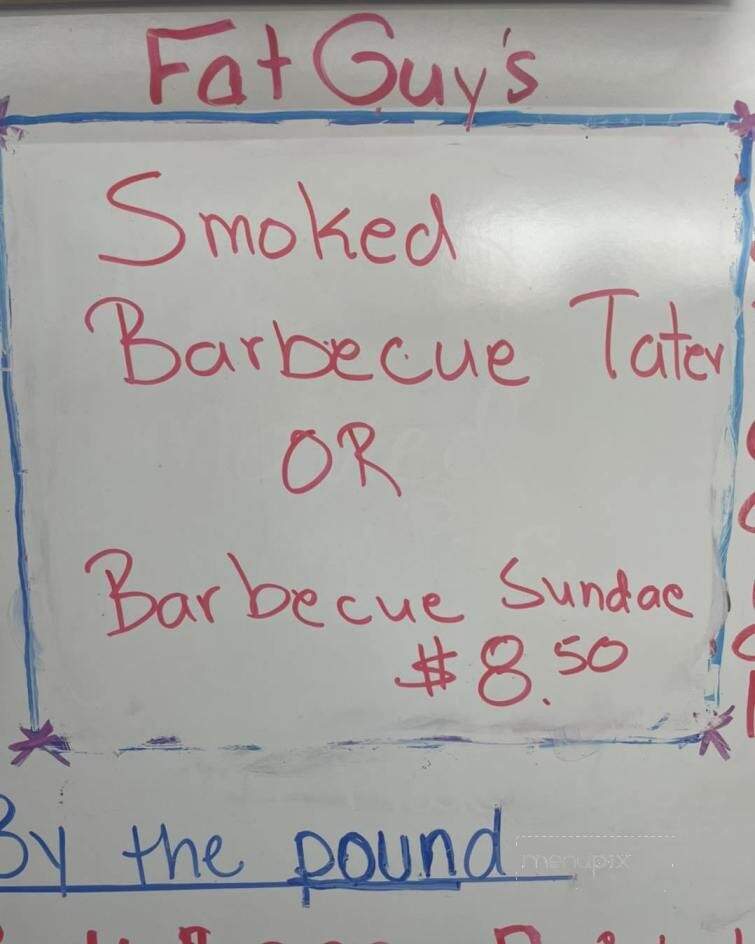 Fat Guy's
Smoked
Barbecue Tater
OR
Barbecue Sundae
$8.50
By the pound
menupix